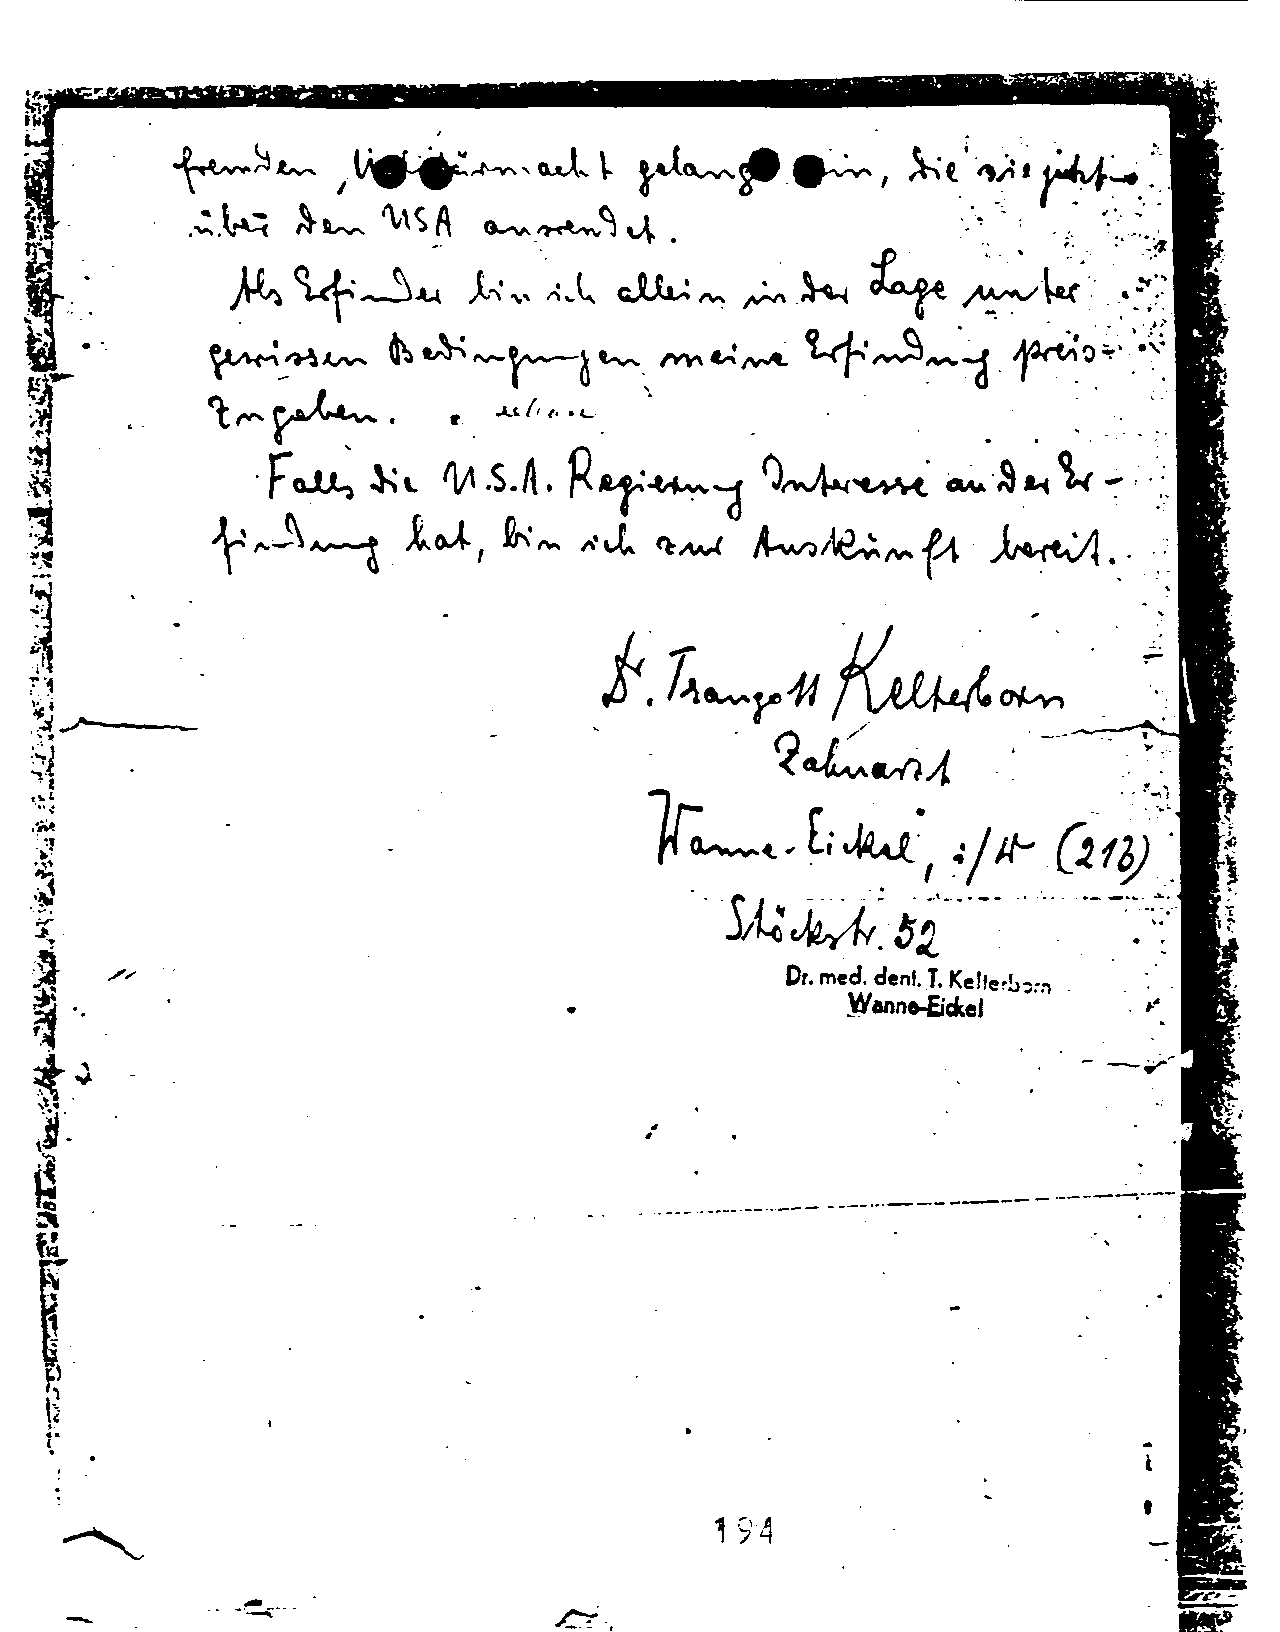 fremden gelang in, die sie jetzt
über den USA anwendet.
Als Erfinder bin ich allein in der Lage unter
gewissen Bedingungen meine Erfindung preis-
zugeben.
Falls die U.S.A. Regierung Interesse an der Er-
findung hat, bin ich zur Auskunft bereit.
Dr. Traugott Kelterborn
Zahnarzt
Wanne-Eickel, i/W (21b)
Stöckstr. 52
Dr. med. dent. T. Kelterborn
Wanne-Eickel
194